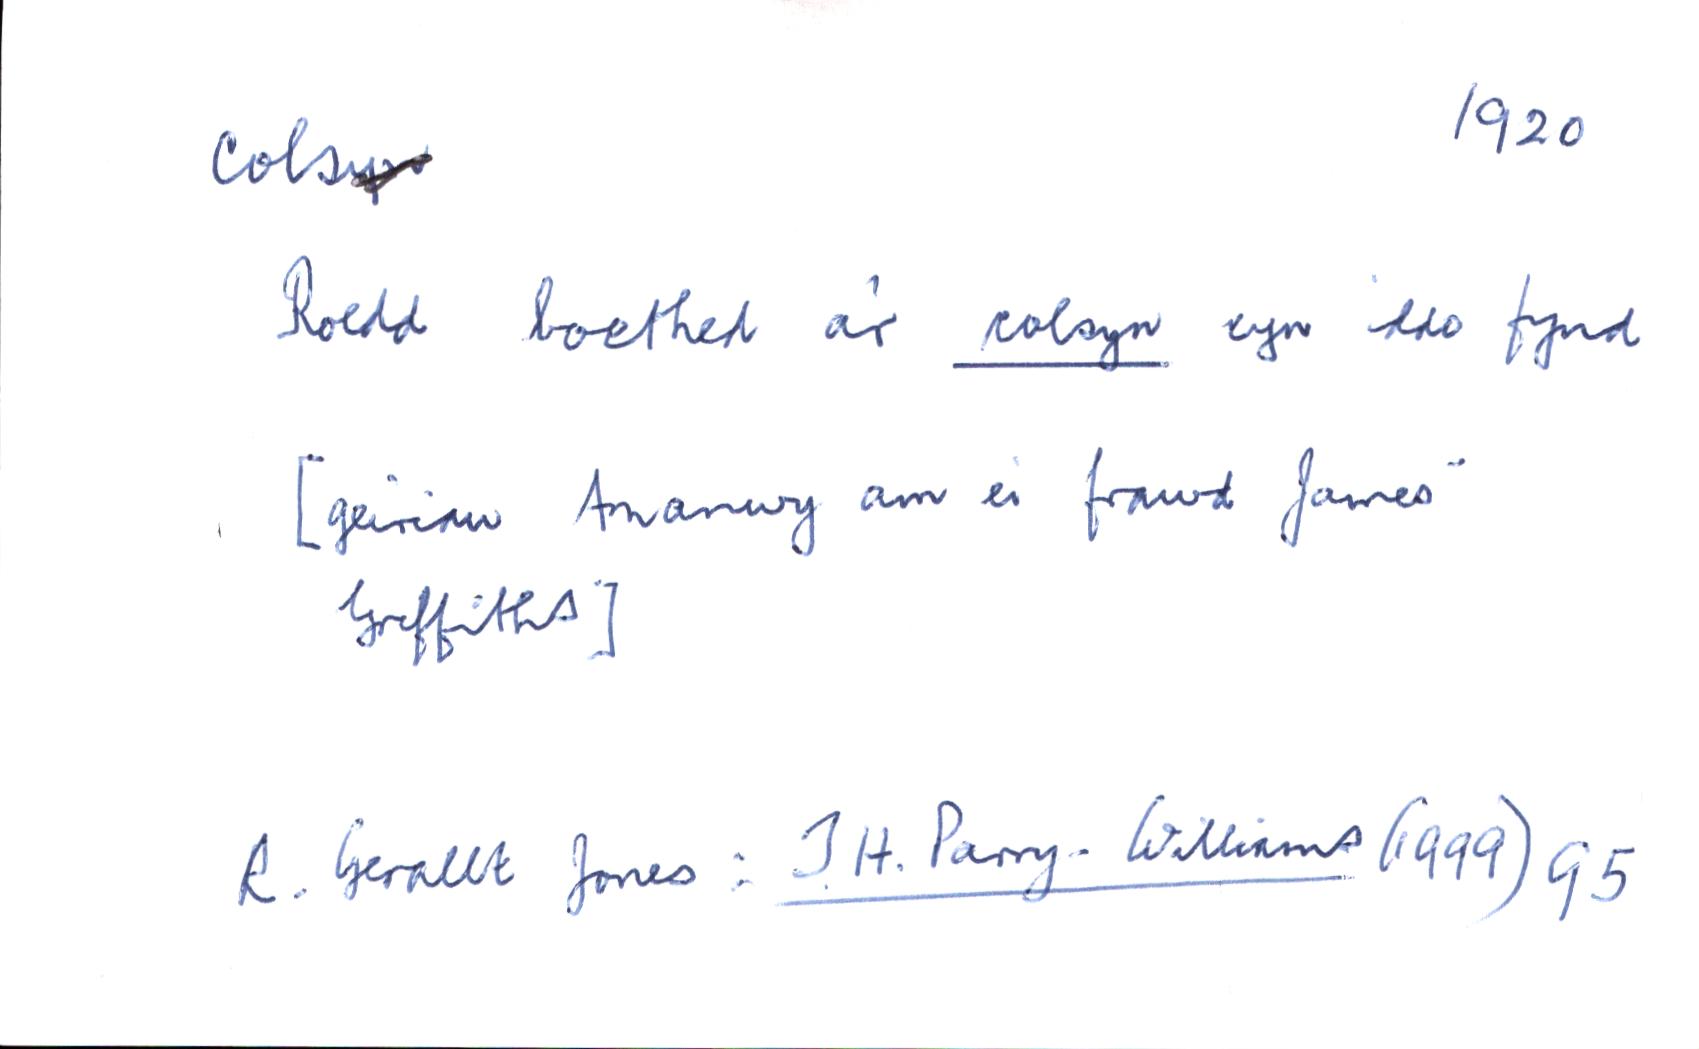 colsyn
1920
Roedd boethed â'r colsyn cyn iddo fynd
[geiriau Amanwy am ei frawd James
Griffiths]
R. Gerallt Jones : T.H. Parry-Williams (1999) 95